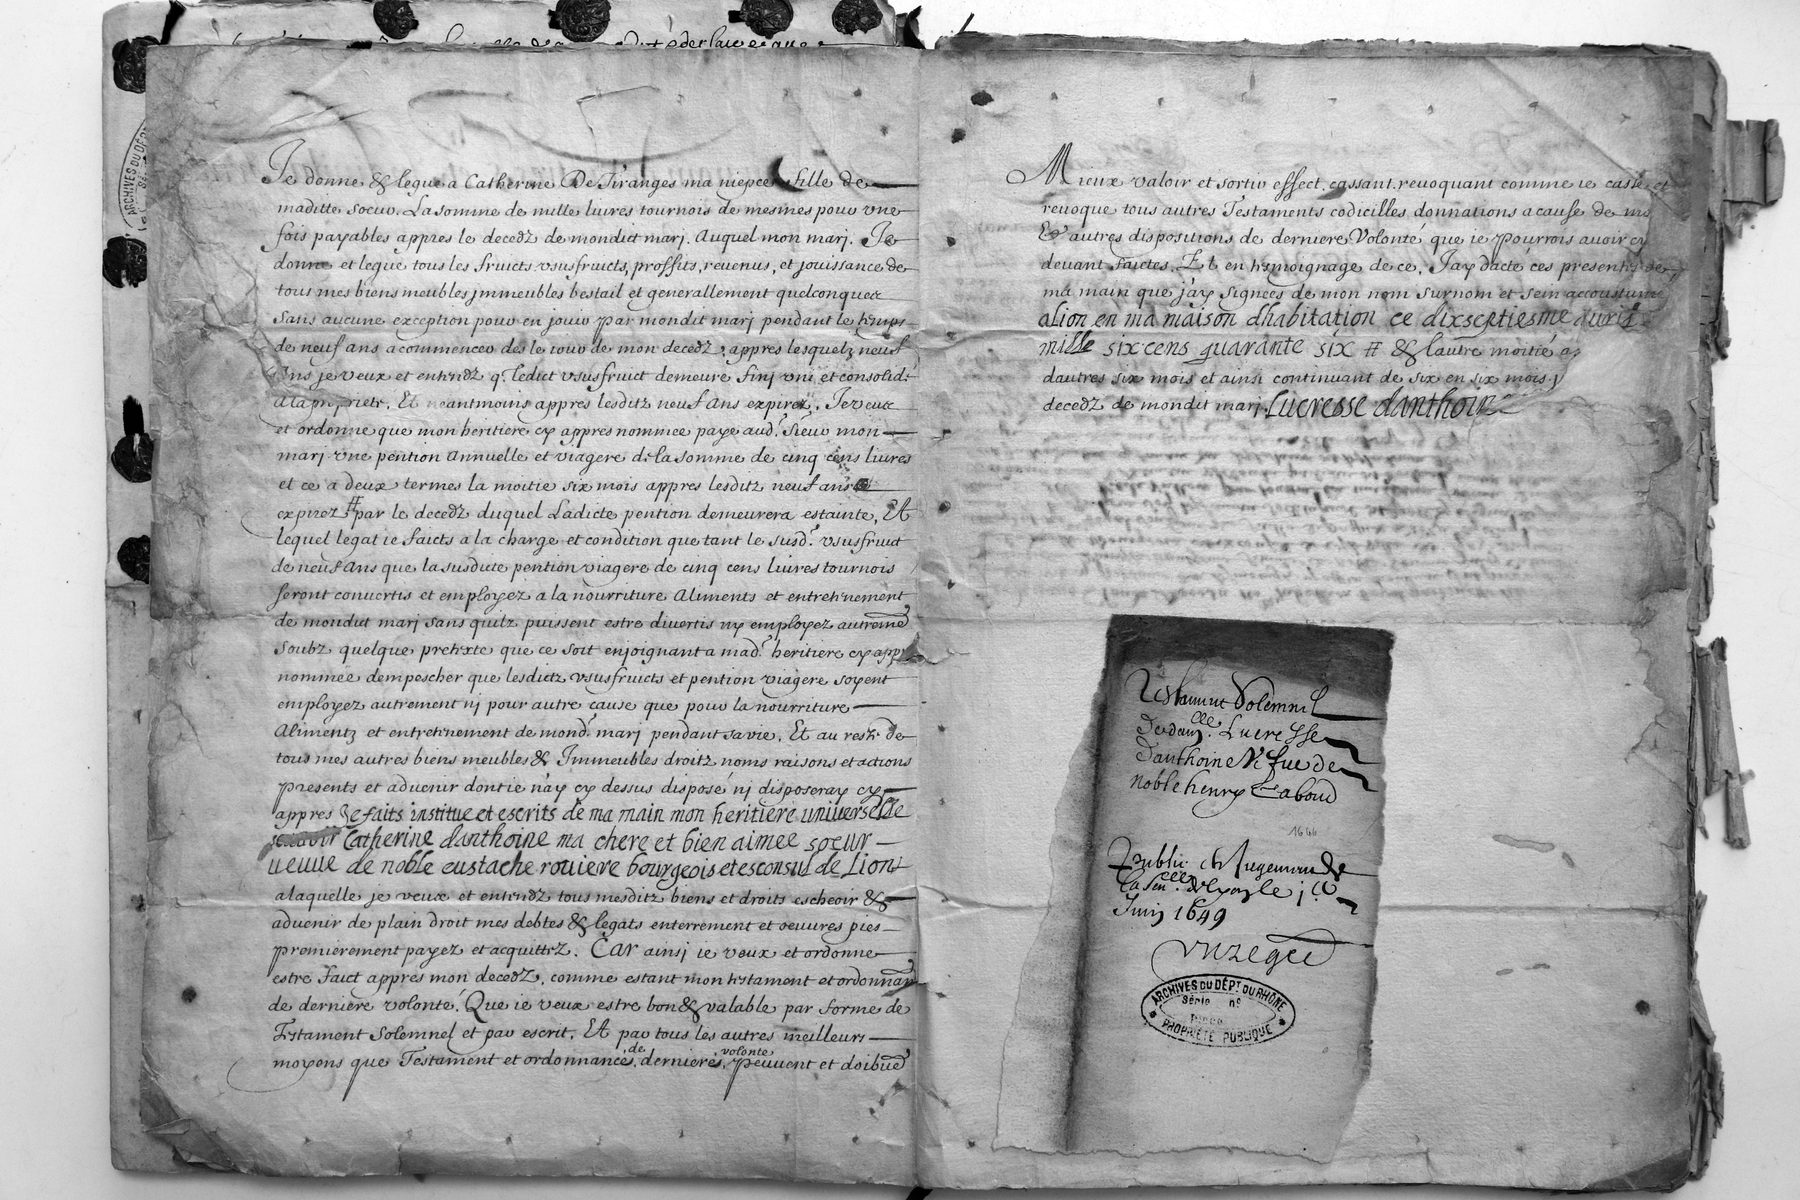 Je donne & legue a Catherine De Tiranges ma niepce fille de
maditte soeur. La somme de mille liures tournois de mesmes pour vne
fois payables appres le decedz de mondict marj. Auquel mon marj. Je
donne et legue tous les fruicts vsusfruicts, proffits, reuenus, et jouissance de
tous mes biens meubles jmmeubles bestail et generallement quelconques
sans aucune exception pour en jouir par mondit marj pendant le temps
de neuf ans a commencer des le iour de mon decedz, appres lesquelz neuf
Ans je veux et entendz q. ledict vsusfruict demeure finj vni et consolidé
ala proprieté. Et neantmoins appres lesditz neuf Ans expirez. Je veux
et ordonne que mon heritiere cy appres nommee paye aud. Sieur mon
marj vne pention Annuelle et viagere de la somme de cinq cens liures
et ce a deux termes la moitie six mois appres lesditz neuf ans
expirez # par le decedz duquel Ladicte pention demeurera estainte, Et
lequel legat ie faicts a la charge et condition que tant le susd. vsusfruict
de neuf Ans que la susdicte pention viagere de cinq cens liures tournois
seront conuertis et employez a la nourriture Aliments et entretenement
de mondict marj sans quilz puissent estre diuertis ny employez autremẽ
soubz quelque pretexte que ce soit enjoignant a mad. heritiere cy appr
nommée dempescher que lesdictz vsusfruicts et pention viagere soyent
employez autrement nj pour autre cause que pour la nourriture
Alimentz et entretenement de mond. marj pendant sa vie, Et au reste de
tous mes autres biens meubles & Jmmeubles droitz noms raisons et actions
presents et aduenir dont ie n'ay cy dessus disposé nj disposeray cy
appres Je faits institue et escrits de ma main mon heritiere universelle
scauoir Catherine danthoine ma chere et bien aimee soeur
ueuue de noble eustache rouiere bourgeois et esconsul de Lion
alaquelle je veux et entendz tous mesditz biens et droits escheoir &
aduenir de plain droit mes debtes & legats enterrement et oeuures pies
premierement payez et acquittez. Car ainsj ie veux et ordonne
estre faict appres mon decedz, comme estant mon testament et ordonnan
de derniere volonté. Que ie veux estre bon & valable par forme de
Testament Solemnel et par escrit, Et par tous les autres meilleurs
moyens que Testament et ordonnances de dernieres volonte peuuent et doibuẽ
Mieux valoir et sortir effect, cassant, reuoquant comme ie casse et
reuoque tous autres Testaments codicilles donnations a cause de
& autres dispositions de derniere Volonté que ie pourrois auoir cy
deuant faictes. Et en tesmoignage de ce, Jay dacté ces presentes de
ma main que j'ay signees de mon nom surnom et sein accoustumé
alion en ma maison dhabitation ce dixseptiesme auril
mille six cens quarante six # & lautre moitié a
dautres six mois et ainsi continuant de six en six mois
decedz de mondit marj. Lucresse danthoine
Testament Solemnel
de dam.elle Lucresse
Danthoine Vefue de
noble henry Caboud
1646
Publié en Jugement de
la Sen.cée de Lyon le j.er
Juin 1649
ARCHIVES DU DÉPT DU RHÔNE
Série nº
Pièce
PROPRIÉTÉ PUBLIQUE
ARCHIVES DU DÉP